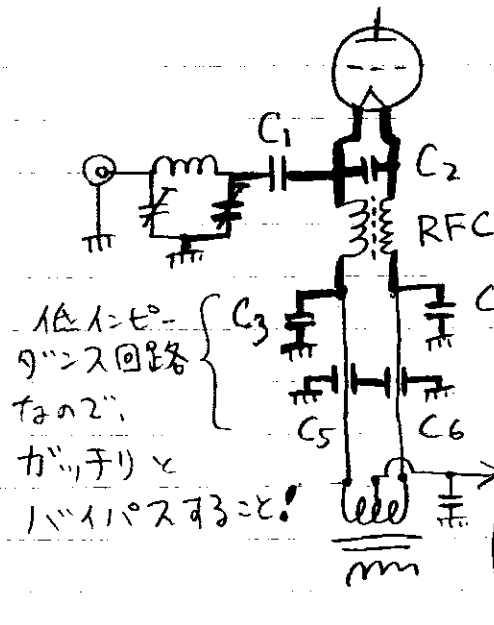 C1
C2
RFC
C3
C
C5
C6
低インピー
ダンス回路
なので、
ガッチリと
バイパスすること!